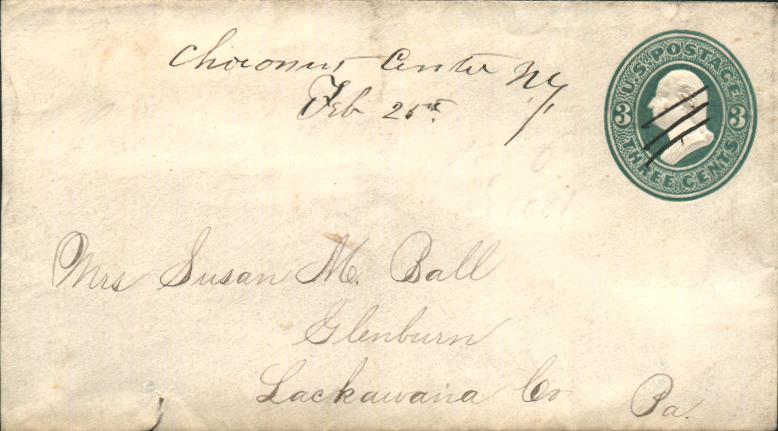 Choconut Center Ny
Feb 25th
U.S. POSTAGE
3 3
THREE CENTS
Mrs Susan M. Ball
Glenburn
Lackawana Co Pa.